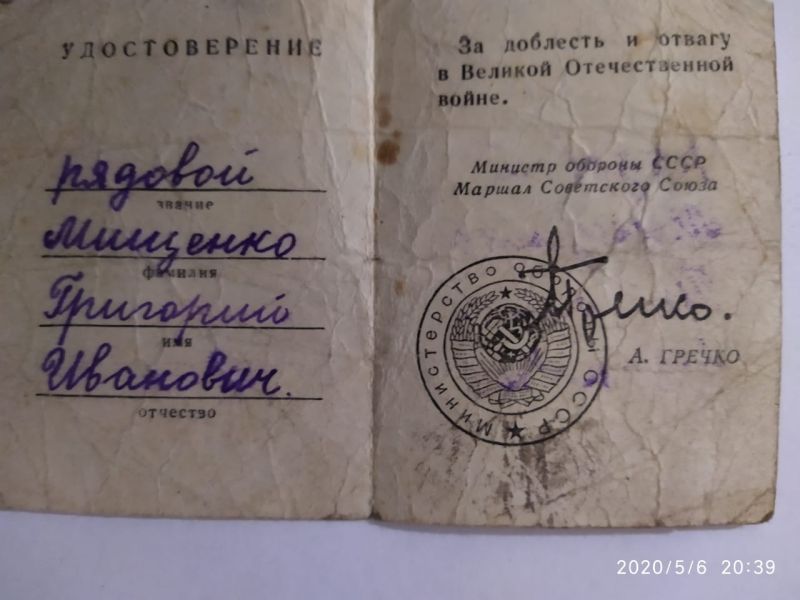 УДОСТОВЕРЕНИЕ
рядовой
звание
Мищенко
фамилия
Григорий
имя
Иванович.
отчество
За доблесть и отвагу
в Великой Отечественной
войне.
Министр обороны СССР
Маршал Советского Союза
МИНИСТЕРСТВО ОБОРОНЫ СССР
Гречко.
А. ГРЕЧКО
2020/5/6 20:39